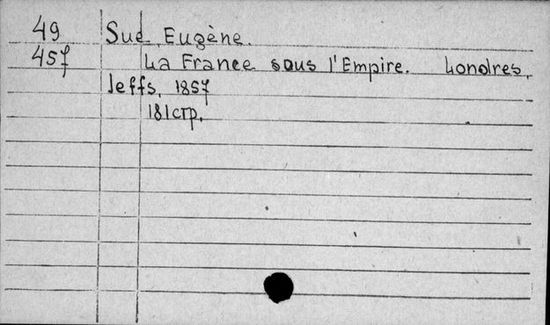 49 Sue, Eugène.
457 La France sous l'Empire. Londres,
Jeffs, 1857
181 стр.